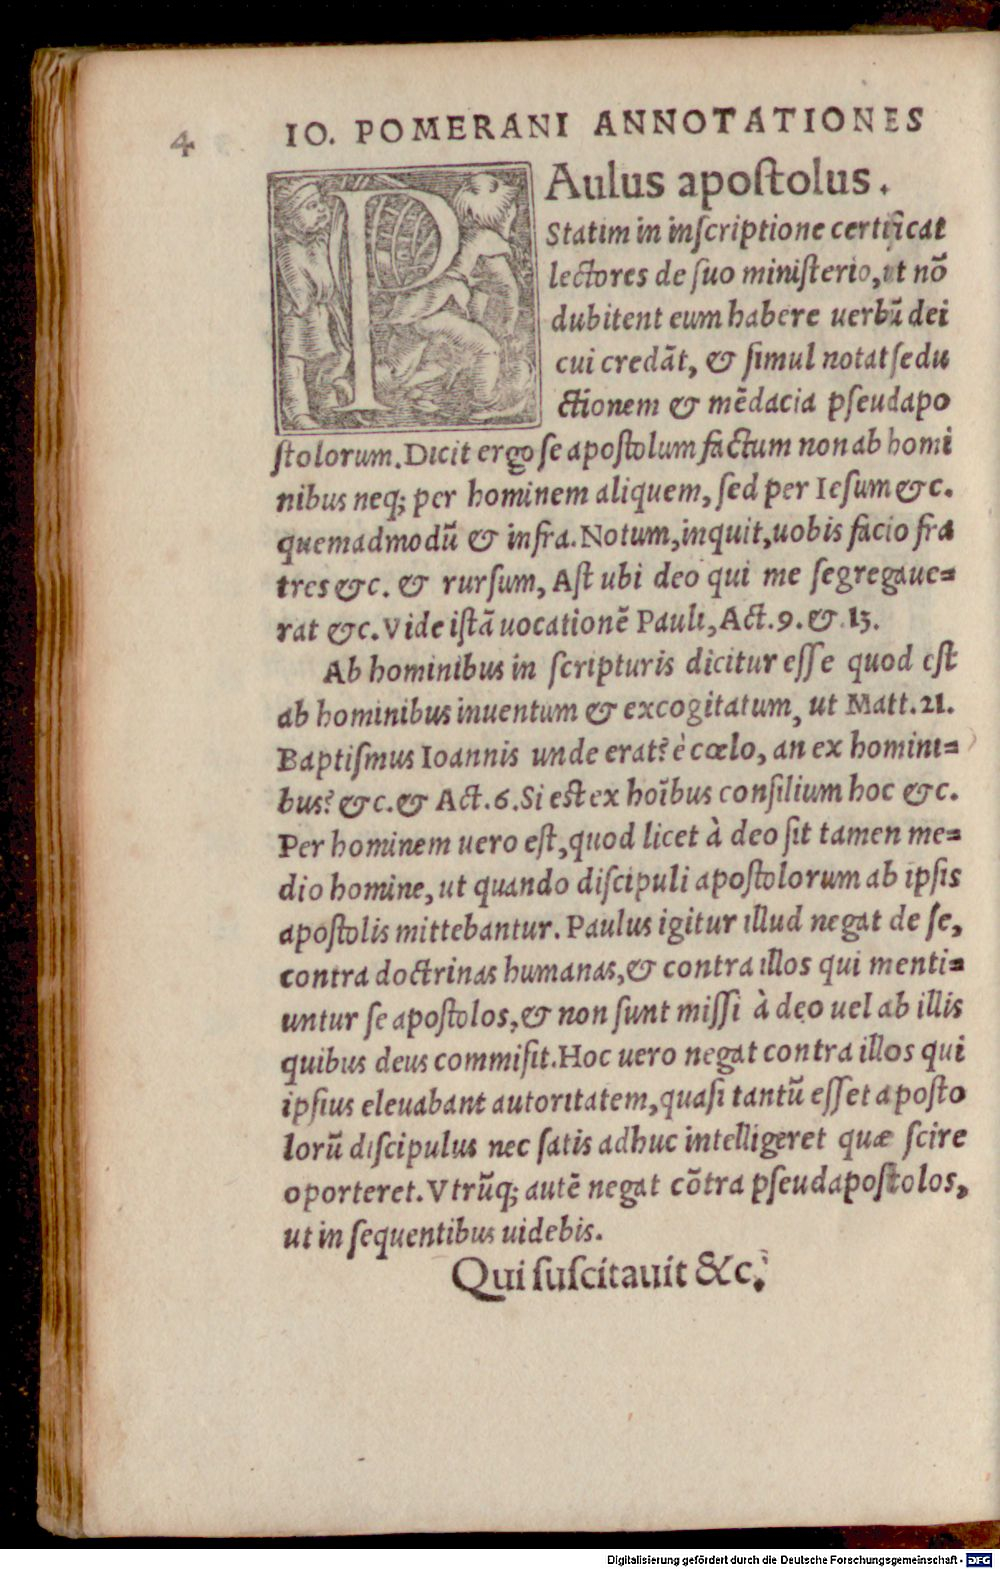 4
IO. POMERANI ANNOTATIONES
PAulus apostolus.
Statim in inscriptione certificat
lectores de suo ministerio, ut nō
dubitent eum habere uerbū dei
cui credāt, & simul notat sedu
ctionem & mēdacia pseudapo
stolorum. Dicit ergo se apostolum factum non ab homi
nibus neq; per hominem aliquem, sed per Iesum &c.
quemadmodū & infra. Notum, inquit, uobis facio fra
tres &c. & rursum, Ast ubi deo qui me segregaue=
rat &c. Vide istā uocationē Pauli, Act. 9. & 13.
Ab hominibus in scripturis dicitur esse quod est
ab hominibus inuentum & excogitatum, ut Matt. 21.
Baptismus Ioannis unde erat? è cœlo, an ex homini=
bus? &c. & Act. 6. Si est ex hoībus consilium hoc &c.
Per hominem uero est, quod licet à deo sit tamen me=
dio homine, ut quando discipuli apostolorum ab ipsis
apostolis mittebantur. Paulus igitur illud negat de se,
contra doctrinas humanas, & contra illos qui menti=
untur se apostolos, & non sunt missi à deo uel ab illis
quibus deus commisit. Hoc uero negat contra illos qui
ipsius eleuabant autoritatem, quasi tantū esset aposto
lorū discipulus nec satis adhuc intelligeret quæ scire
oporteret. Vtrūq; autē negat cōtra pseudapostolos,
ut in sequentibus uidebis.
Qui suscitauit &c.
Digitalisierung gefördert durch die Deutsche Forschungsgemeinschaft - DFG